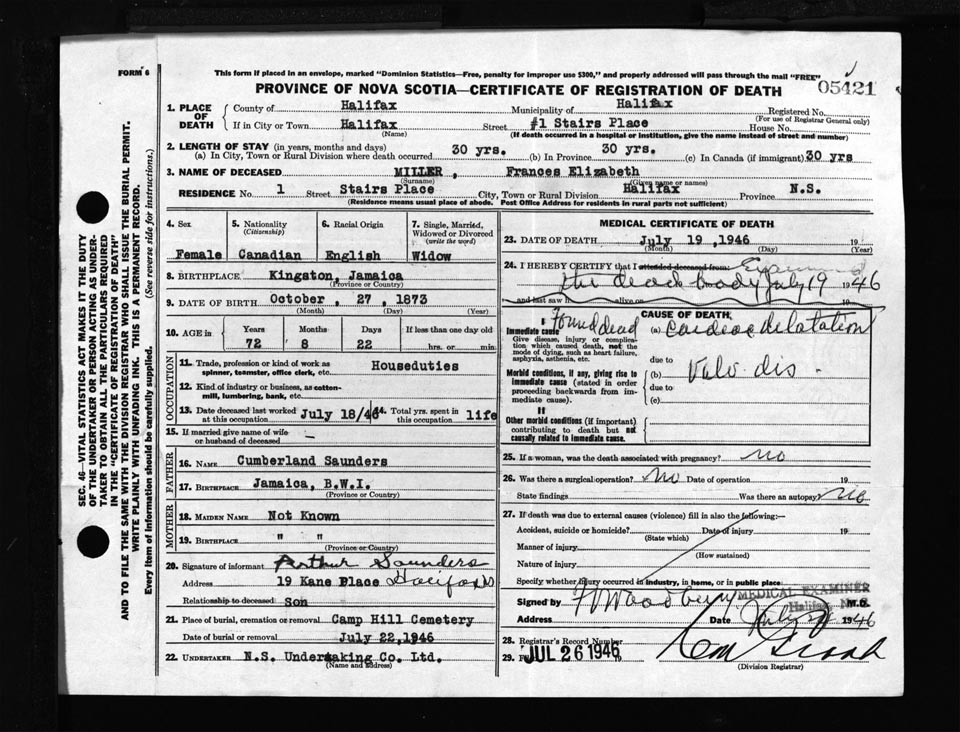 FORM 6
This form if placed in an envelope, marked "Dominion Statistics—Free, penalty for improper use $300," and properly addressed will pass through the mail "FREE"
PROVINCE OF NOVA SCOTIA—CERTIFICATE OF REGISTRATION OF DEATH
05421
1. PLACE OF DEATH
County of Halifax Municipality of Halifax Registered No.
(For use of Registrar General only)
If in City or Town Halifax Street #1 Stairs Place House No.
(Name) (If death occurred in a hospital or institution, give the name instead of street and number)
2. LENGTH OF STAY (in years, months and days)
(a) In City, Town or Rural Division where death occurred 30 yrs. (b) In Province 30 yrs. (c) In Canada (if immigrant) 30 yrs
3. NAME OF DECEASED MILLER, Frances Elizabeth
(Surname) (Given name or names)
RESIDENCE No. 1 Street Stairs Place City, Town or Rural Division Halifax Province N.S.
(Residence means usual place of abode. Post Office Address for residents in rural parts not sufficient)
4. Sex
Female
5. Nationality
(Citizenship)
Canadian
6. Racial Origin
English
7. Single, Married, Widowed or Divorced
(write the word)
Widow
8. BIRTHPLACE Kingston, Jamaica
(Province or Country)
9. DATE OF BIRTH October, 27, 1873
(Month) (Day) (Year)
10. AGE in
Years Months Days If less than one day old
72 8 22 hrs. or min.
OCCUPATION
11. Trade, profession or kind of work as spinner, teamster, office clerk, etc. Houseduties
12. Kind of industry or business, as cotton-mill, lumbering, bank, etc.
13. Date deceased last worked at this occupation July 18/46 14. Total yrs. spent in this occupation life
15. If married give name of wife or husband of deceased –
FATHER
16. NAME Cumberland Saunders
17. BIRTHPLACE Jamaica, B.W.I.
(Province or Country)
MOTHER
18. MAIDEN NAME Not Known
19. BIRTHPLACE " "
(Province or Country)
20. Signature of informant Arthur Saunders
Address 19 Kane Place Halifax
Relationship to deceased Son
21. Place of burial, cremation or removal Camp Hill Cemetery
Date of burial or removal July 22, 1946
22. UNDERTAKER N.S. Undertaking Co. Ltd.
(Name and address)
MEDICAL CERTIFICATE OF DEATH
23. DATE OF DEATH July 19, 1946 19
(Month) (Day) (Year)
24. I HEREBY CERTIFY that I attended deceased from: Examined
the dead body July 19 1946
and last saw h alive on
CAUSE OF DEATH
I
Immediate cause Found dead
Give disease, injury or complication which caused death, not the mode of dying, such as heart failure, asphyxia, asthenia, etc.
(a) cardiac dilatation
due to
Morbid conditions, if any, giving rise to immediate cause (stated in order proceeding backwards from immediate cause).
(b) Valv. dis.
due to
(c)
II
Other morbid conditions (if important) contributing to death but not causally related to immediate cause.
25. If a woman, was the death associated with pregnancy? no
26. Was there a surgical operation? No Date of operation 19
State findings Was there an autopsy? no
27. If death was due to external causes (violence) fill in also the following:—
Accident, suicide or homicide? Date of injury 19
(State which)
Manner of injury
(How sustained)
Nature of injury
Specify whether injury occurred in industry, in home, or in public place:
MEDICAL EXAMINER
Halifax
Signed by Woodbury M.D.
Address Date July 1946
28. Registrar's Record Number
29. JUL 26 1946
(Division Registrar)
SEC. 46—VITAL STATISTICS ACT MAKES IT THE DUTY
OF THE UNDERTAKER OR PERSON ACTING AS UNDERTAKER
TO OBTAIN ALL THE PARTICULARS REQUIRED
IN THE "CERTIFICATE OF REGISTRATION OF DEATH"
AND TO FILE THE SAME WITH THE DIVISION REGISTRAR WHO SHALL ISSUE THE BURIAL PERMIT.
WRITE PLAINLY WITH UNFADING INK. THIS IS A PERMANENT RECORD.
Every item of information should be carefully supplied. (See reverse side for instructions.)